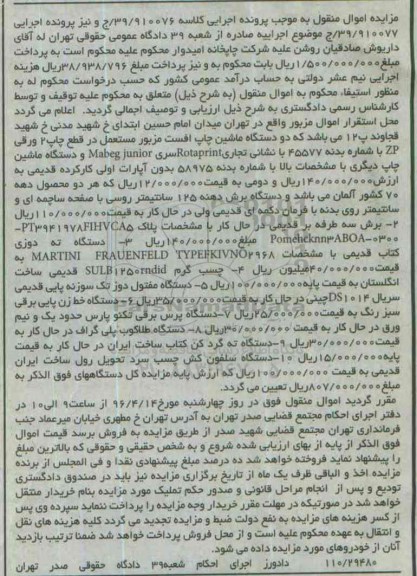 مزایده اموال منقول به موجب پرونده اجرایی کلاسه ۳۹/۹۱۰۰۷۶/ج و نیز پرونده اجرایی
۳۹/۹۱۰۰۷۷/ج موضوع اجراییه صادره از شعبه ۳۹ دادگاه عمومی حقوقی تهران له آقای
داریوش صادقیان روشن علیه شرکت چاپخانه امیدوار محکوم علیه محکوم است به پرداخت
مبلغ ۱/۵۰۰/۰۰۰/۰۰۰ ریال بابت محکوم به و نیز پرداخت مبلغ ۳۸/۹۳۸/۷۹۶ ریال هزینه
اجرایی نیم عشر دولتی به حساب درآمد عمومی کشور که حسب درخواست محکوم له به
منظور استیفا، محکوم به اموال منقول (به شرح ذیل) متعلق به محکوم علیه توقیف و توسط
کارشناس رسمی دادگستری به شرح ذیل ارزیابی و توصیف اجمالی گردید. اعلام می گردد
محل استقرار اموال مزبور واقع در تهران میدان امام حسین ابتدای خ شهید مدنی خ شهید
قجاوند پ۱۲ می باشد که دو دستگاه ماشین چاپ افست مزبور مستعمل در قطع چاپ۲ ورقی
ZP با شماره بدنه ۴۵۵۷۷ با نشانی تجاری Rotaprint سری Mabeg junior و دستگاه ماشین
چاپ دیگری با مشخصات بالا با شماره بدنه ۵۸۹۷۵ بدون آپارات اولی کارکرده قدیمی به
ارزش ۱۴۰/۰۰۰/۰۰۰ ریال و دومی به قیمت ۱۲/۰۰۰/۰۰۰ ریال که هر دو محصول دهه
۷۰ کشور آلمان می باشد و دستگاه برش دهنه ۱۲۵ سانتیمتر روسی با صفحه ساچمه ای و
سانتیمتر روی بدنه با فرمان دکمه ای قدیمی ولی در حال کار به قیمت ۱۱۰/۰۰۰/۰۰۰ ریال
۲- برش سه طرفه بر قدیمی در حال کار با مشخصات پلاک PT۳۹۴۱۹۷۸FIHVCA۵-
Pomehcknn۳ABOA-۰۳۰۰ مبلغ ۱۴۰/۰۰۰/۰۰۰ ریال ۳- دستگاه ته دوزی
کتاب قدیمی با مشخصات MARTINI FRAUENFELD TYPEFKIVNO۲۹۶۸ به
قیمت ۴۰/۰۰۰/۰۰۰ میلیون ریال ۴- چسب گرم SULB۱۲۵۰rndid قدیمی ساخت
انگلستان به قیمت پایه ۱۰۰/۰۰۰/۰۰۰ ریال ۵- دستگاه مفتول دوز تک سوزنه پایی قدیمی
سریال DS۱۰۱۴ چینی در حال کار به قیمت ۳۵/۰۰۰/۰۰۰ ریال ۶- دستگاه خط زن پایی برقی
سبز رنگ به قیمت ۲۵/۰۰۰/۰۰۰ ریال ۷- دستگاه پرس برقی فکنو پارس حدود یک و نیم
ورق در حال کار به قیمت ۳۰/۰۰۰/۰۰۰ ریال ۸- دستگاه طلاکوب پلی گراف در حال کار به
قیمت ۳۰/۰۰۰/۰۰۰ ریال ۹- دستگاه ته گرد کن کتاب ساخت ایران در حال کار به قیمت
پایه ۱۵/۰۰۰/۰۰۰ ریال ۱۰- دستگاه سلفون کش چسب سرد تحویل رول ساخت ایران
قدیمی به قیمت ۱۰۰/۰۰۰/۰۰۰ ریال که ارزش پایه مزایده کل دستگاههای فوق الذکر به
مبلغ ۸۰۷/۰۰۰/۰۰۰ ریال تعیین می گردد.
مقرر گردید اموال منقول فوق در روز چهارشنبه مورخ ۹۶/۴/۱۴ از ساعت ۹ الی ۱۰ در
دفتر اجرای احکام مجتمع قضایی صدر تهران به آدرس تهران خ مطهری خیابان میرعماد جنب
فرمانداری تهران مجتمع قضایی شهید صدر از طریق مزایده به فروش برسد قیمت اموال
فوق الذکر از پایه از بهای ارزیابی شده شروع و به شخص حقیقی و حقوقی که بالاترین مبلغ
را پیشنهاد نماید فروخته خواهد شد ده درصد مبلغ پیشنهادی نقدا و فی المجلس از برنده
مزایده اخذ و الباقی ظرف یک ماه از تاریخ برگزاری مزایده نیز باید در صندوق دادگستری
تودیع و پس از انجام مراحل قانونی و صدور حکم تملیک مورد مزایده بنام خریدار منتقل
خواهد شد در صورتیکه در مهلت مقرر خریدار وجه مزایده را پرداخت ننماید سپرده وی پس
از کسر هزینه های مزایده به نفع دولت ضبط و مزایده تجدید می گردد کلیه هزینه های نقل
و انتقال به عهده محکوم علیه است و از محل فروش پرداخت خواهد شد ضمنا ترتیب بازدید
آنان از خودروهای مورد مزایده داده می شود.
۱۱۰/۲۹۴۸۰ دادورز اجرای احکام شعبه ۳۹ دادگاه حقوقی صدر تهران